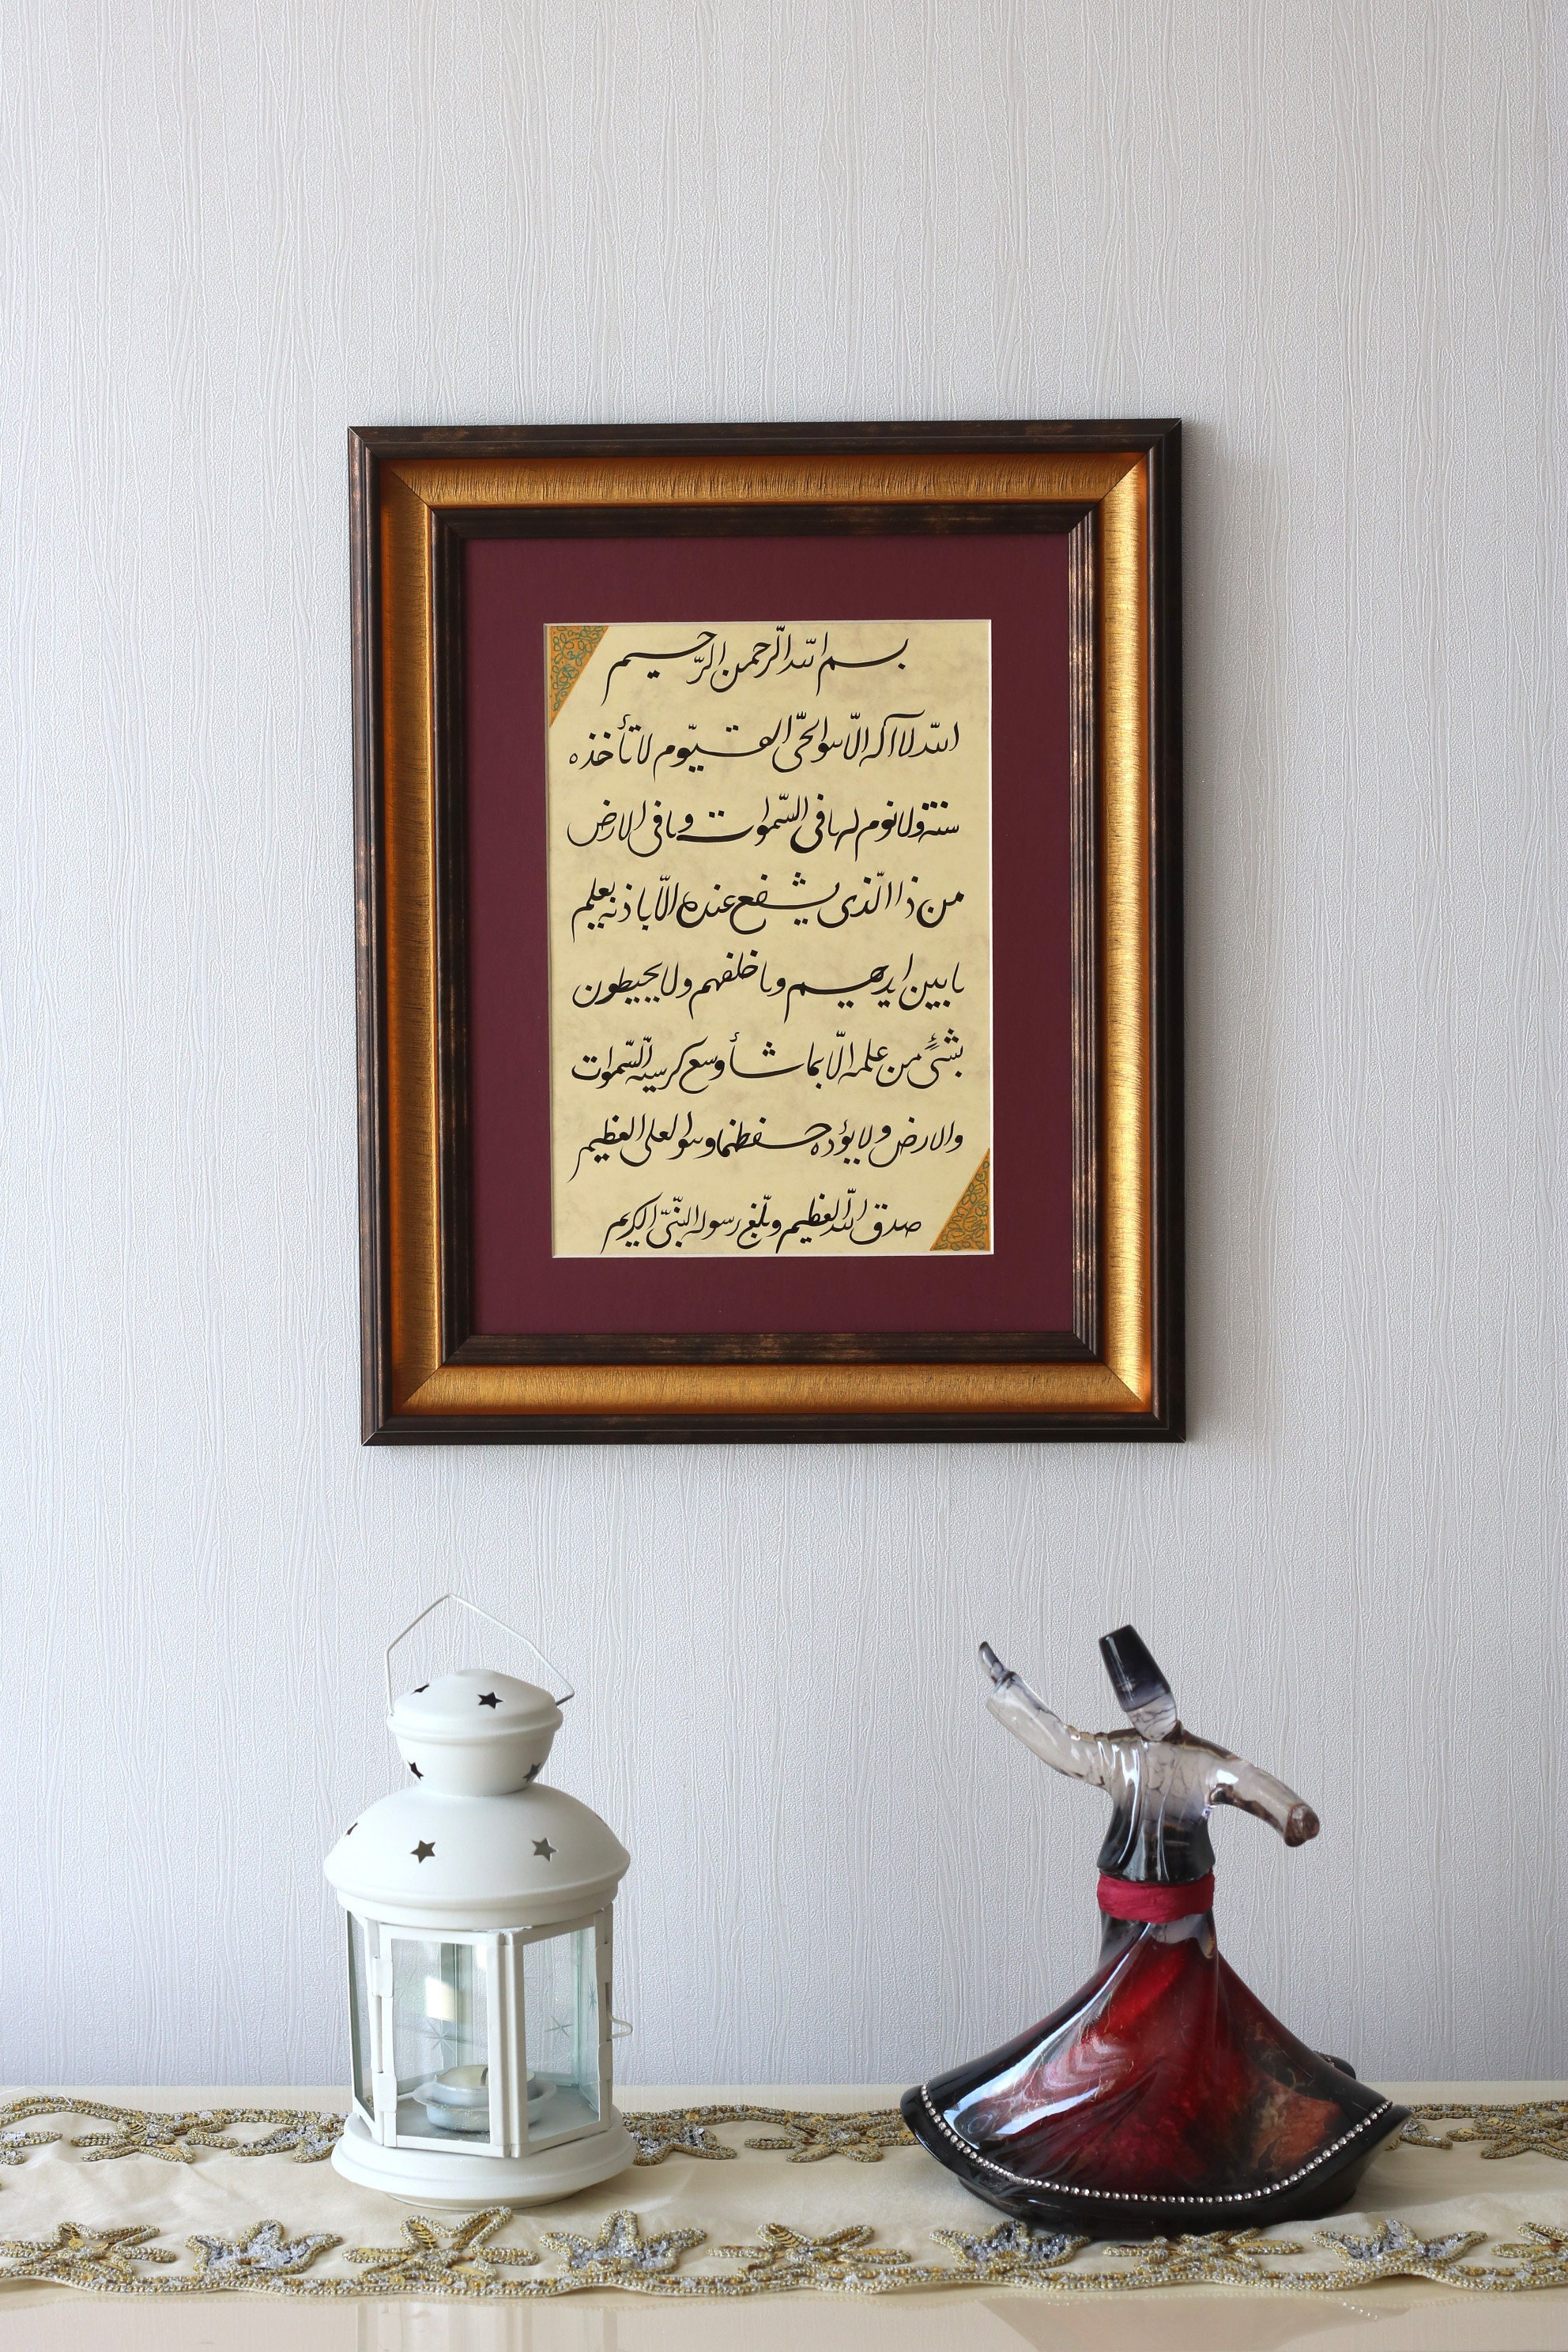 بسم الله الرّحمن الرّحیم
الله لا اله الّا هو الحیّ القیّوم لا تأخذه
سنة ولا نوم له ما فی السّموات وما فی الارض
من ذا الّذی یشفع عنده الّا باذنه یعلم
ما بین ایدیهم وما خلفهم ولا یحیطون
بشیءٍ من علمه الّا بما شأ وسع کرسیه السّموات
والارض ولا یؤده حفظهما وهو العلی العظیم
صدق الله العظیم وبلّغ رسوله النّبیّ الکریم